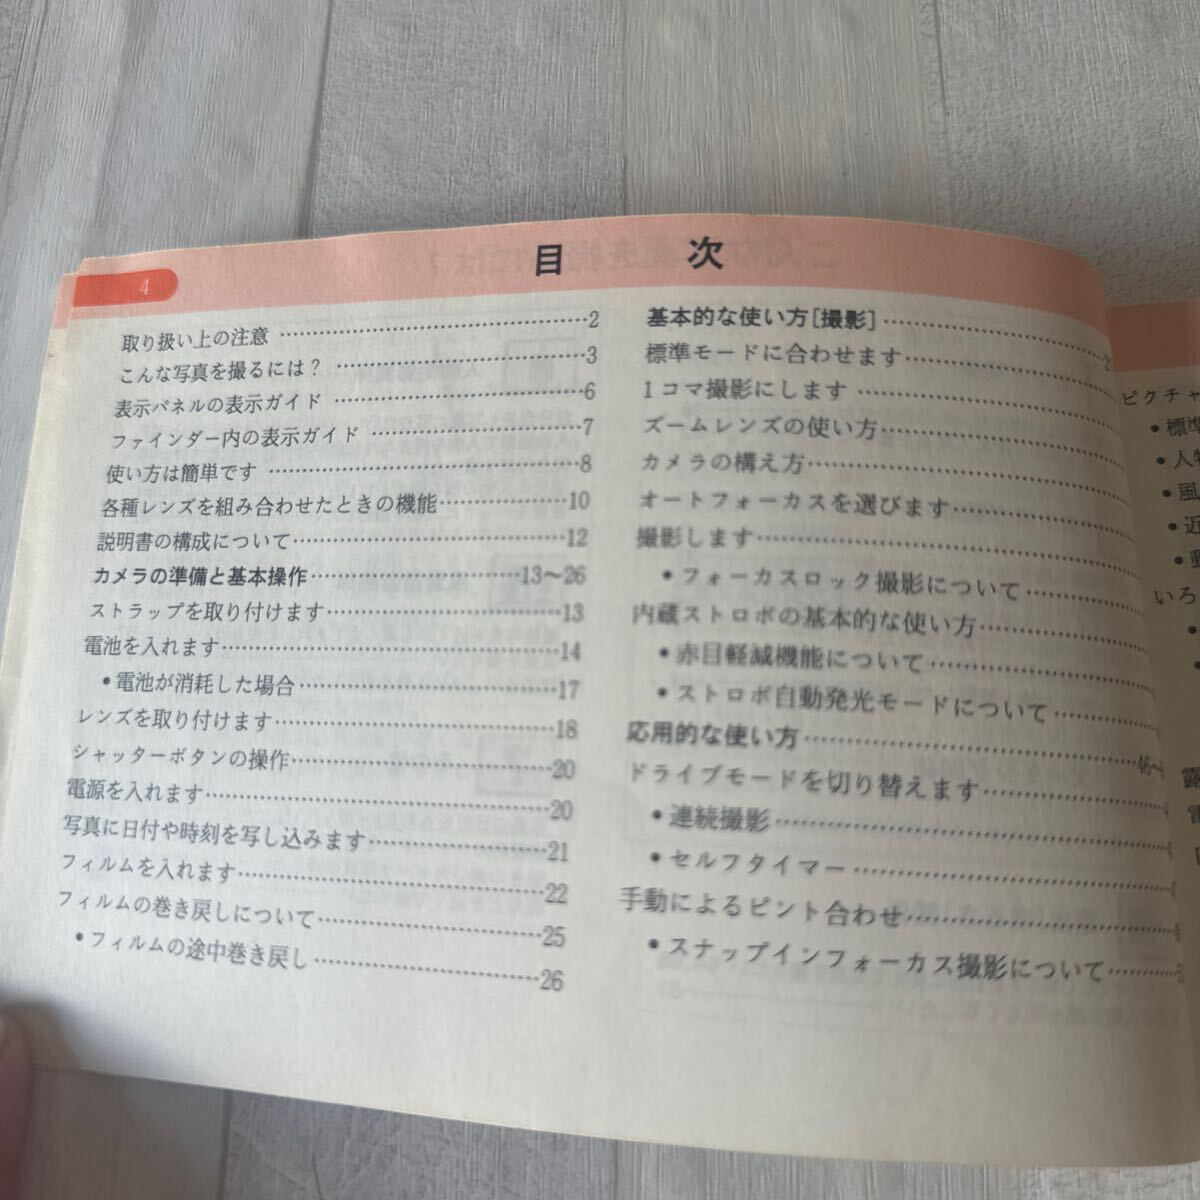 4
目次
取り扱い上の注意……2
こんな写真を撮るには？……3
表示パネルの表示ガイド……6
ファインダー内の表示ガイド……7
使い方は簡単です……8
各種レンズを組み合わせたときの機能……10
説明書の構成について……12
カメラの準備と基本操作……13～26
ストラップを取り付けます……13
電池を入れます……14
•電池が消耗した場合……17
レンズを取り付けます……18
シャッターボタンの操作……20
電源を入れます……20
写真に日付や時刻を写し込みます……21
フィルムを入れます……22
フィルムの巻き戻しについて……25
•フィルムの途中巻き戻し……26
基本的な使い方［撮影］……
標準モードに合わせます……
1コマ撮影にします……
ズームレンズの使い方……
カメラの構え方……
オートフォーカスを選びます……
撮影します……
•フォーカスロック撮影について……
内蔵ストロボの基本的な使い方……
•赤目軽減機能について……
•ストロボ自動発光モードについて……
応用的な使い方……46～
ドライブモードを切り替えます……
•連続撮影……
•セルフタイマー……
手動によるピント合わせ……
•スナップインフォーカス撮影について……
ピクチャ
•標準
•人物
•風
•近
•動
いろ
露
電